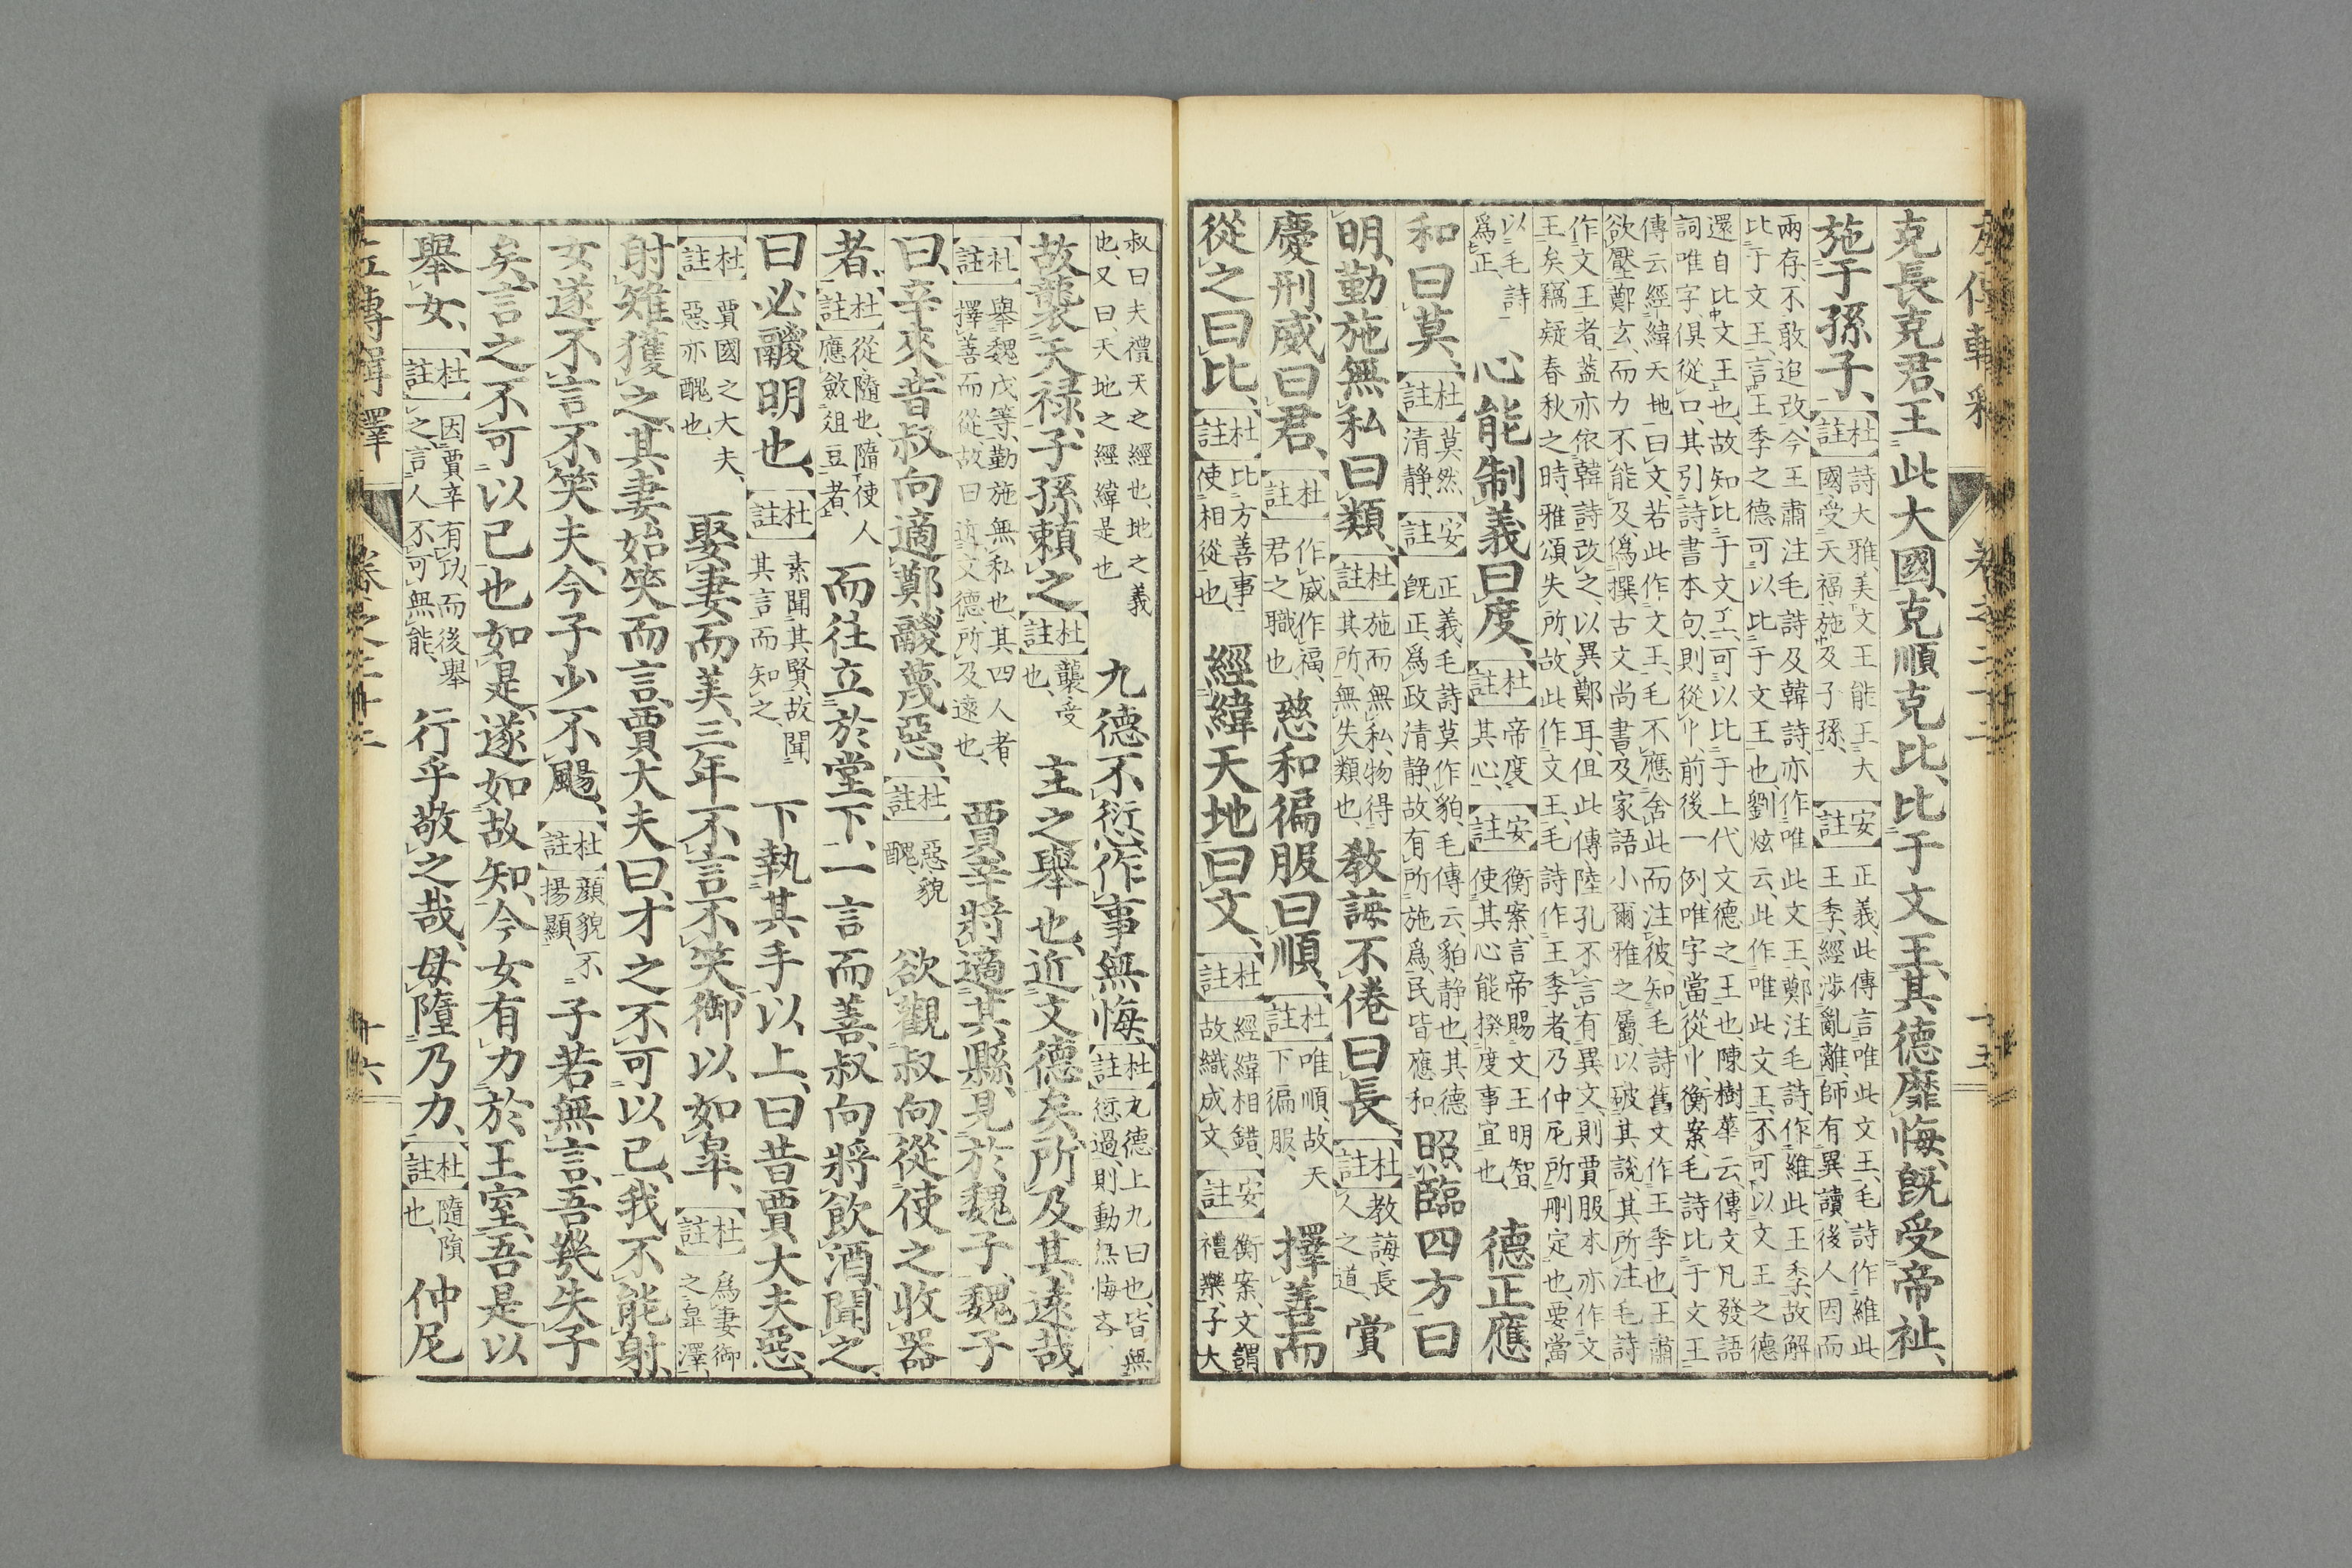 克長克君、王此大國、克順克比、比于文王、其德靡悔、既受帝祉、
施于孫子、【杜註】詩大雅、美文王能王大
國、受天福、施及子孫、【安註】正義、此傳言唯此文王、毛詩作維此
王季、經涉亂離、師有異讀、後人因而
兩存、不敢追改、今王肅注毛詩、及韓詩、亦作唯此文王、鄭注毛詩、作維此王季、故解
比于文王、言王季之德、可以比于文王也、劉炫云、此作唯此文王、不可以文王之德
還自比文王也、故知比于文王、可以比于上代文德之王也、陳樹華云、傳文凡發語
詞唯字、俱從口、其引詩書本句、則從忄、前後一例、唯字當從忄、衡案、毛詩比于文王
傳云、經緯天地曰文、若此作文王、毛不應舍此而注彼、知毛詩舊文作王季也、王肅
欲壓鄭玄、而力不能及、僞撰古文尚書、及家語小爾雅之屬、以破其說、其所注毛詩
作文王者、蓋亦依韓詩改之、以異鄭耳、但此傳陸孔不言有異文、則賈服本亦作文
王矣、竊疑春秋之時、雅頌失所、故此作文王、毛詩作王季者、乃仲尼所刪定也、要當
以毛詩
爲正
心能制義曰度、【杜註】帝度
其心、【安註】衡案、言帝賜文王明智、
使其心能揆度事宜也、德正應
和曰莫、【杜註】莫然
清靜、【安註】正義、毛詩莫作貊、毛傳云、貊靜也、其德
既正、爲政清靜、故有所施爲、民皆應和 照臨四方曰
明、勤施無私曰類、【杜註】施而無私、物得
其所、無失類也、教誨不倦曰長、【杜註】教誨長
人之道、賞
慶刑威曰君、【杜註】作威作福、
君之職也、慈和徧服曰順、【杜註】唯順、故天
下徧服、擇善而
從之曰比、【杜註】比方善事
使相從也、經緯天地曰文、【杜註】經緯相錯、
故織成文、【安註】衡案、文謂
禮樂、子大
叔曰夫禮天之經也、地之義
也、又曰、天地之經緯是也 九德不愆、作事無悔、【杜註】九德上九曰也、皆無
愆過、則動無悔吝、
故襲天祿、子孫賴之【杜註】襲、受
也、主之舉也、近文德矣、所及其遠哉、
【杜註】舉魏戊等、勤施無私也、其四人者
擇善而從、故曰近文德、所及遠也、賈辛將適其縣、見於魏子、魏子
曰、辛來、昔叔向適鄭、鬷蔑惡、【杜註】惡貌
醜、欲觀叔向、從使之收器
者、【杜註】從、隨也、隨使人
應斂俎豆者、而往立於堂下、一言而善、叔向將飲酒、聞之、
曰必鬷明也、【杜註】素聞其賢、故聞
其言而知之、下執其手以上、曰昔賈大夫惡、
【杜註】賈國之大夫、
惡亦醜也、娶妻而美、三年不言不笑、御以如皐、【杜註】爲妻御
之皐澤、
射雉獲之、其妻始笑而言、賈大夫曰、才之不可以已、我不能射、
女遂不言不笑夫、今子少不颺、【杜註】顔貌不
揚顯、子若無言、吾幾失子
矣、言之不可以已也如是、遂如故知、今女有力於王室、吾是以
舉女、【杜註】因賈辛有功、而後舉
之、言人不可無能、行乎敬之哉、毋墮乃力、【杜註】隨、隕
也、仲尼
左傳輯釋 卷之二十二 十六